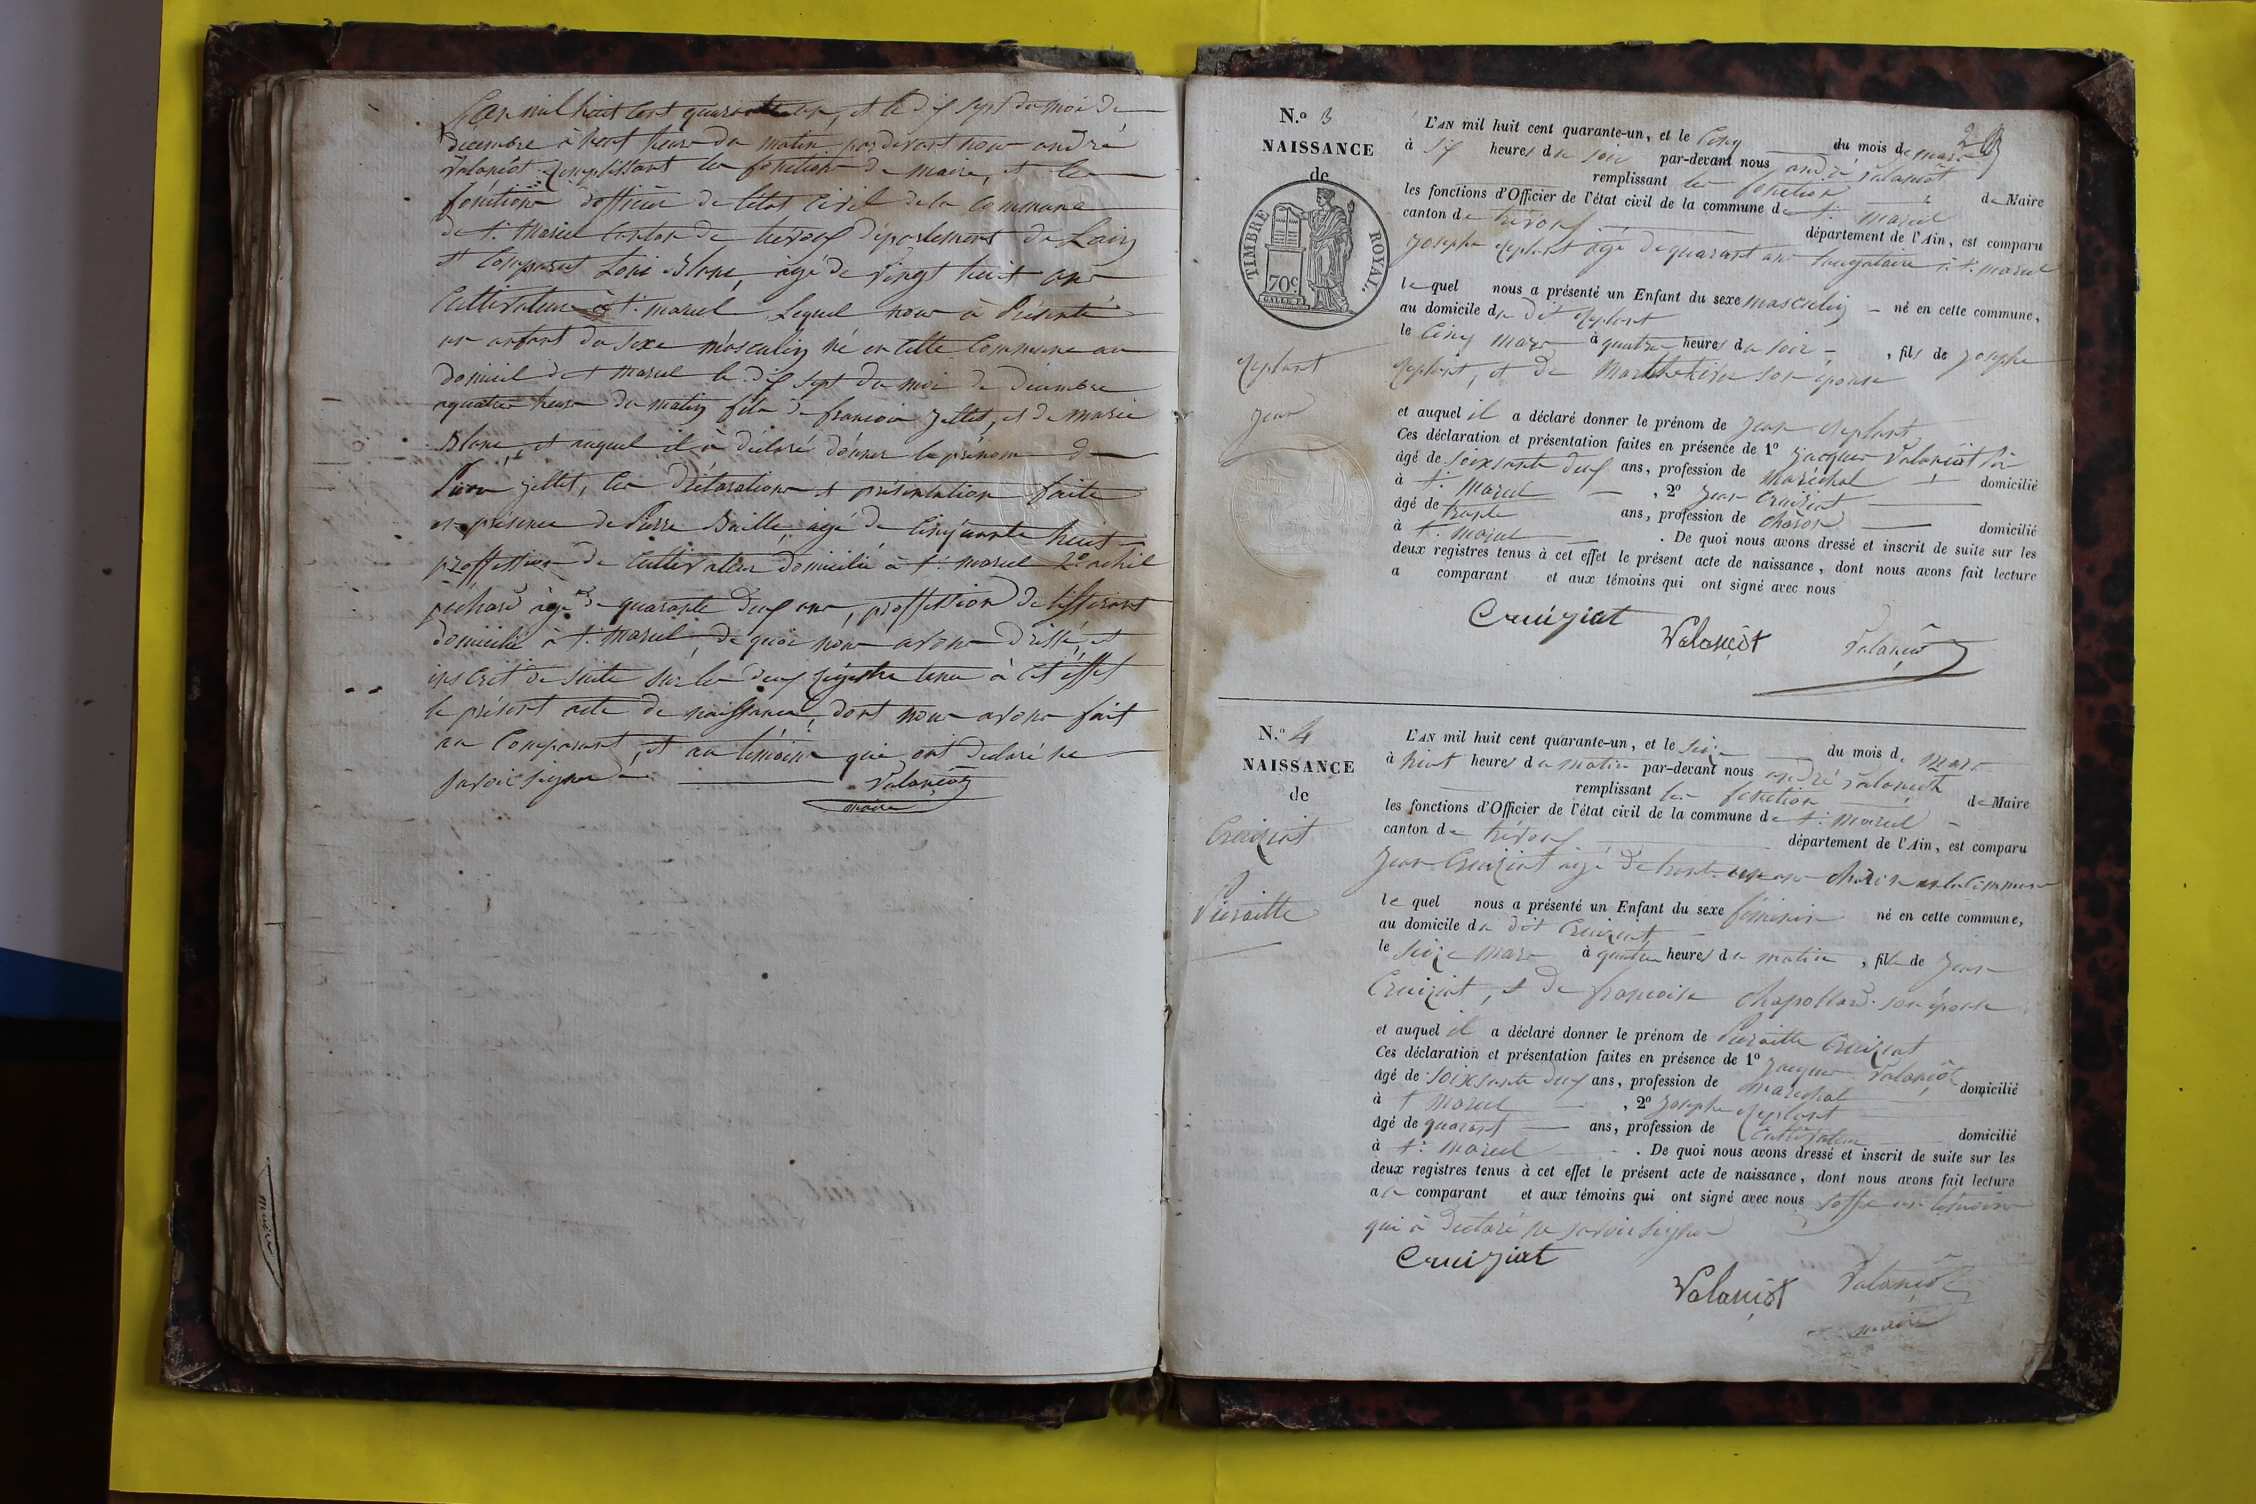 L'an mil huit cent quarante un, et le dix sept du moi de
décembre à heure du matin pardevant nous andré
Valançot remplissant les fonctions de maire, et les
fonctions d'officier de l'état civil de la commune
de St. Marcel canton de trévoux département de Lain
et comparut Loui Blanc, agé de vingt huit ans
Cultivateur à St. marcel Lequel nous à Présenté
un enfant du sexe masculin né en cette Commune au
domicil de St marcel le dix sept du moi de décembre
a quatre heure du matin fils de francois Jettet, et de marie
Blanc, et auquel il à déclaré donner le prénom de
Jettet, Ces Déclarations et présentation faite
en présence de Pierre Baille agé de Cinquante huit
proffession de Cultivateur domicilié à St. marcel 2o
agé de quarante deux ans, proffession de tisserant
domicilié à St. marcel, de quoi nous avons dressé, et
inscrit de suite sur les deux régistre tenu à cet effet
le présent acte de naissance, dont nous avons fait
au Comparant, et au témoins qui ont déclaré ne
savoir signer
Valançot
maire
N.o 3
NAISSANCE
de
TIMBRE ROYAL.
70c
Neplant
Jean
L'AN mil huit cent quarante-un, et le Cinq du mois de mars
à six heures du soir par-devant nous andré Valançot
remplissant les fonction de Maire
les fonctions d'Officier de l'état civil de la commune de St. Marcel
canton de trévoux département de l'Ain, est comparu
Joseph Neplant agé de quarant ans à St. marcel
le quel nous a présenté un Enfant du sexe masculin né en cette commune,
au domicile du dit Neplant
le Cinq mars à quatre heures du soir, fils de Joseph
Neplant, et de son épouse
et auquel il a déclaré donner le prénom de Jean Neplant
Ces déclaration et présentation faites en présence de 1o Jacques Valançot
âgé de soixsante deux ans, profession de Maréchal domicilié
à St. Marcel, 2o Jean Cruiziat
âgé de trante ans, profession de charon domicilié
à St. Marcel. De quoi nous avons dressé et inscrit de suite sur les
deux registres tenus à cet effet le présent acte de naissance, dont nous avons fait lecture
a comparant et aux témoins qui ont signé avec nous
Cruiziat Valançot Valançot
N.o 4
NAISSANCE
de
Cruiziat
Pieraitte
L'AN mil huit cent quarante-un, et le seize du mois de mars
à huit heures du matin par-devant nous andré Valançot
remplissant les fonction de Maire
les fonctions d'Officier de l'état civil de la commune de St. Marcel
canton de trévoux département de l'Ain, est comparu
Jean Cruiziat agé de trente un ans charon en la Commune
le quel nous a présenté un Enfant du sexe féminin né en cette commune,
au domicile du dit Cruiziat
le seize mars à quatre heures du matin, fille de Jean
Cruiziat, et de francoise Chapollard son épouse
et auquel il a déclaré donner le prénom de Pieraitte Cruiziat
Ces déclaration et présentation faites en présence de 1o Jacques Valançot
âgé de soixsante deux ans, profession de maréchal domicilié
à St Marcel, 2o Joseph Neplant
âgé de quarant ans, profession de Cultivateur domicilié
à St. Marcel. De quoi nous avons dressé et inscrit de suite sur les
deux registres tenus à cet effet le présent acte de naissance, dont nous avons fait lecture
au comparant et aux témoins qui ont signé avec nous un témoin
qui à declaré ne savoir signer
Cruiziat Valançot Valançot
maire